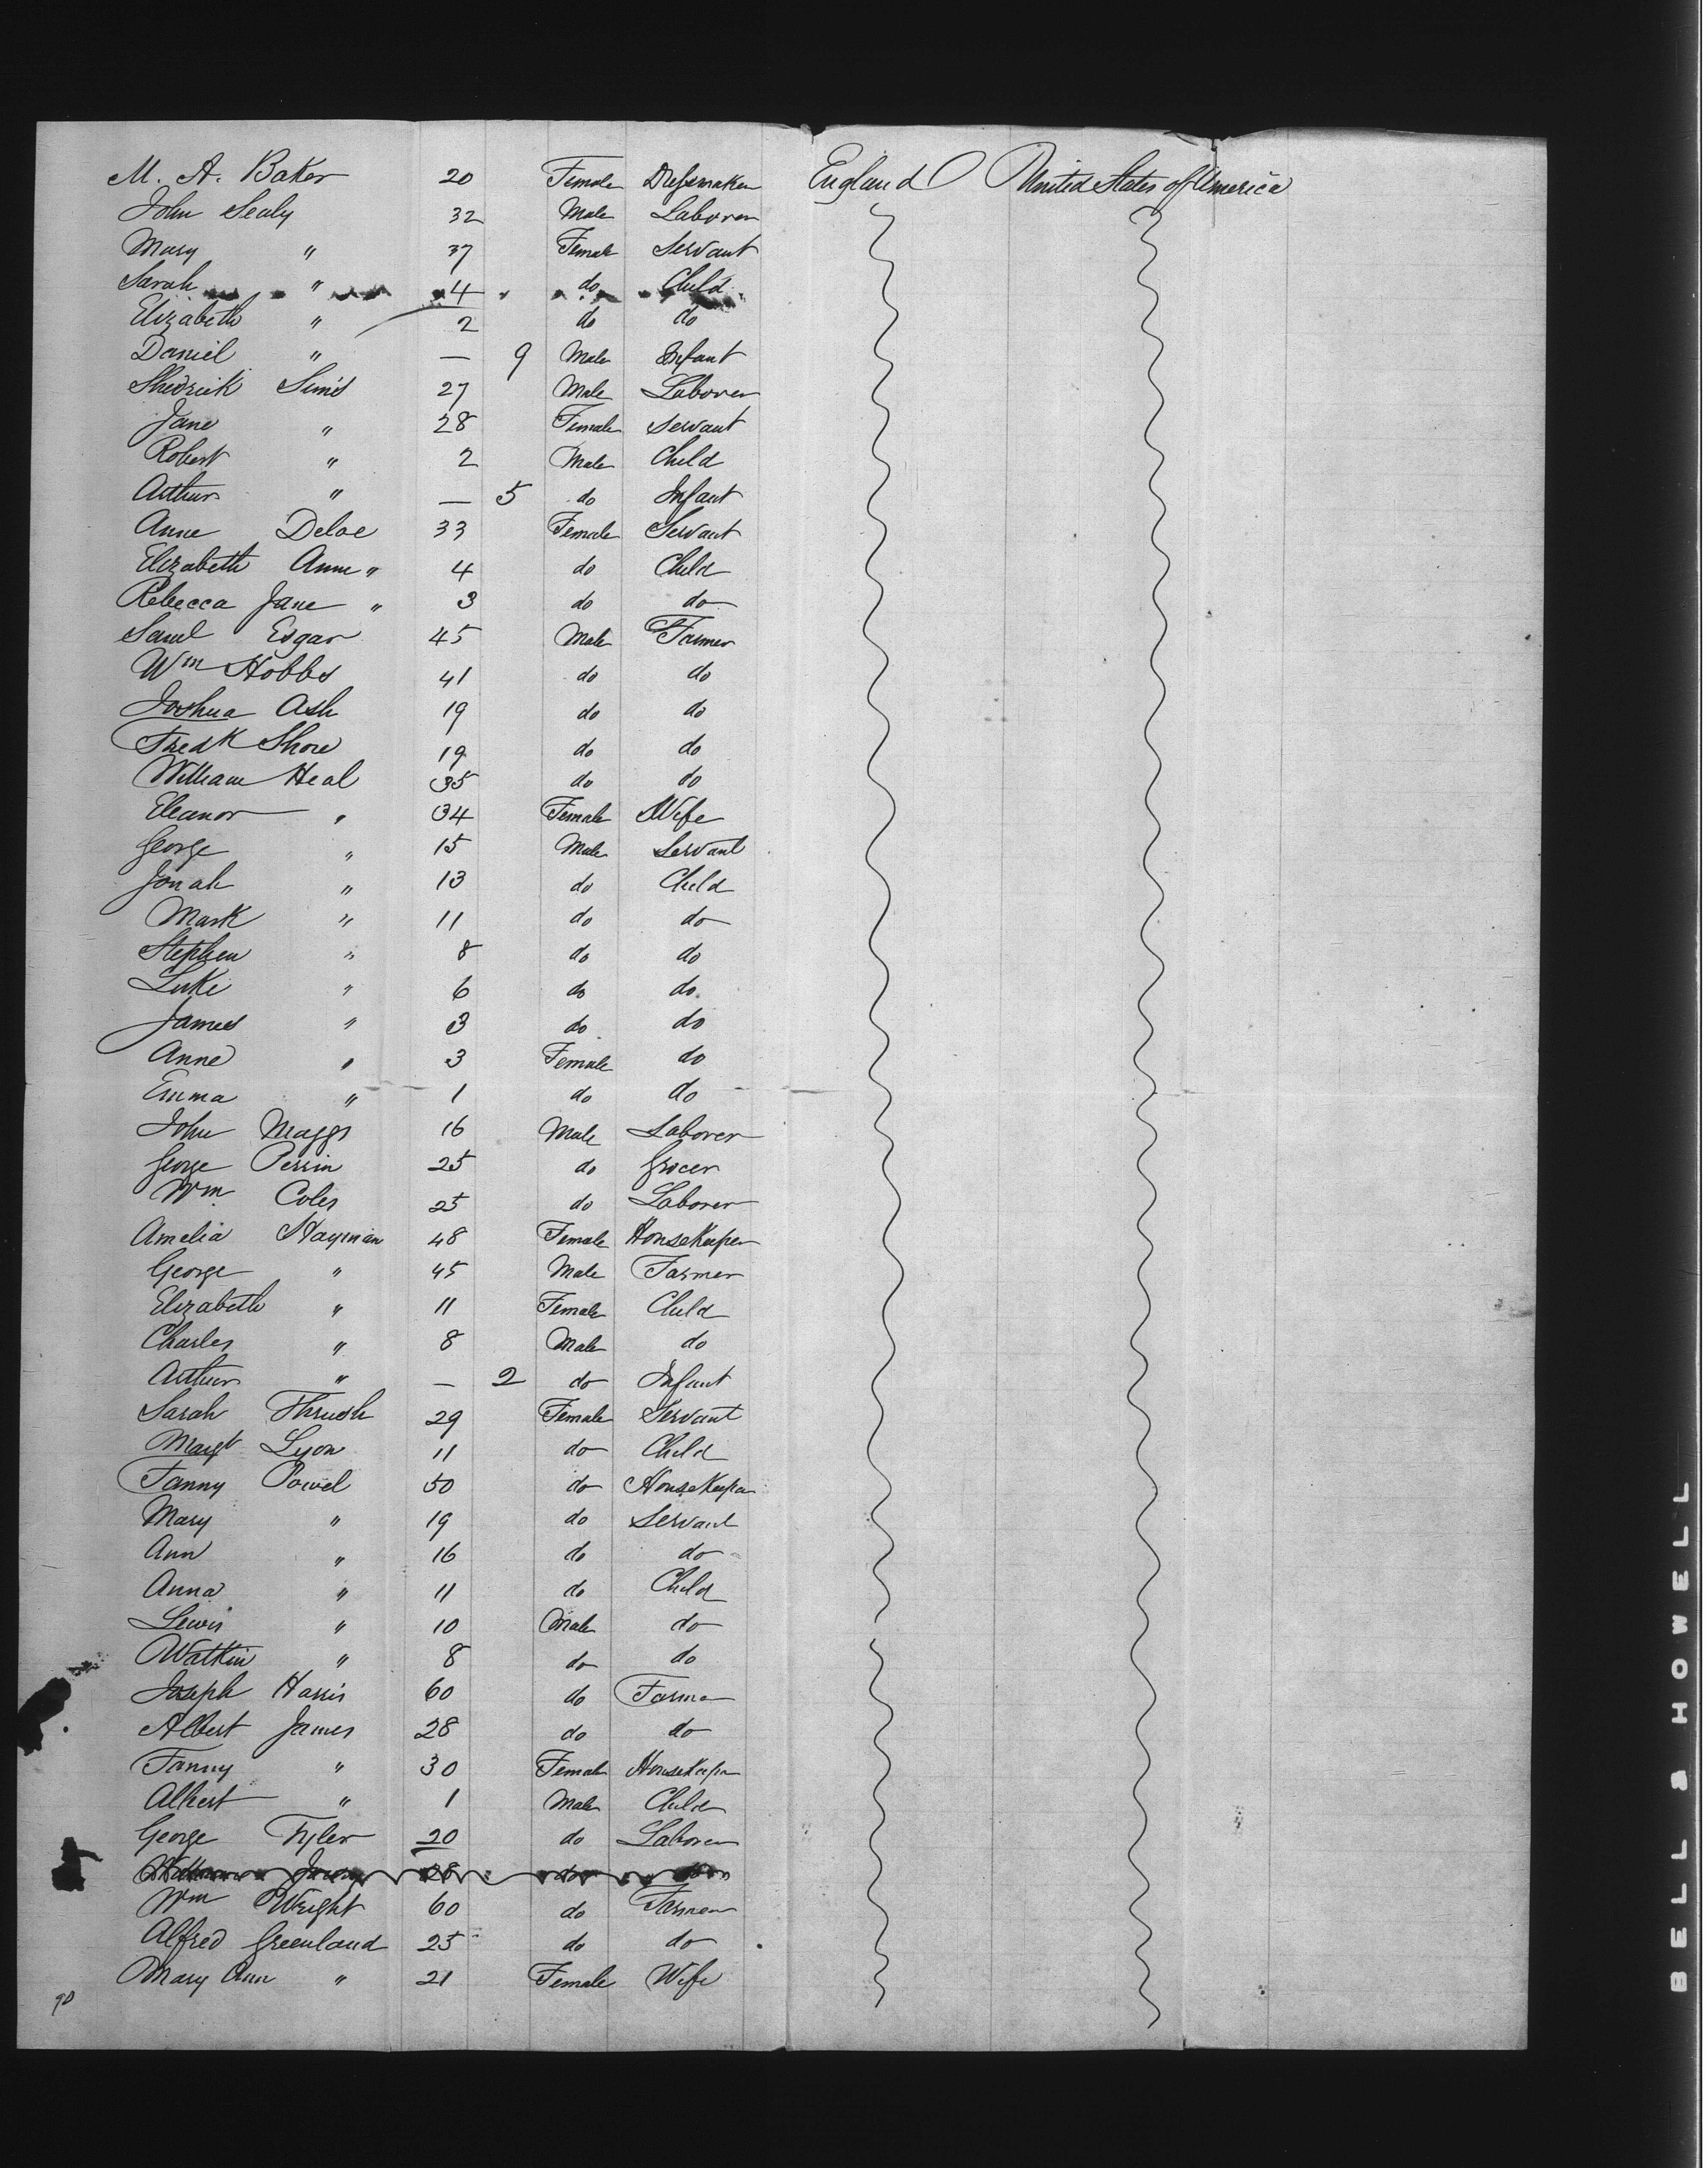 M. A. Baker 20 Female Dressmaker England United States of America
John Sealy 32 Male Laborer
Mary " 37 Female Servant
Sarah " 4 do Child
Elizabeth " 2 do do
Daniel " — 9 Male Infant
Shedrick Sims 27 Male Laborer
Jane " 28 Female Servant
Robert " 2 Male Child
Arthur " — 5 do Infant
Anne Deloe 33 Female Servant
Elizabeth Anne " 4 do Child
Rebecca Jane " 3 do do
Saml Edgar 45 Male Farmer
Wm Hobbs 41 do do
Joshua Ash 19 do do
Fredk Shore 19 do do
William Heal 35 do do
Eleanor " 34 Female Wife
George " 15 Male Servant
Jonah " 13 do Child
Mark " 11 do do
Stephen " 8 do do
Luke " 6 do do
James " 3 do do
Anne " 3 Female do
Emma " 1 do do
John Maggs 16 Male Laborer
George Perrin 25 do Grocer
Wm Coles 25 do Laborer
Amelia Hayman 48 Female Housekeeper
George " 45 Male Farmer
Elizabeth " 11 Female Child
Charles " 8 Male do
Arthur " — 2 do Infant
Sarah Thrush 29 Female Servant
Margt Lyon 11 do Child
Fanny Powel 50 do Housekeeper
Mary " 19 do Servant
Ann " 16 do do
Anna " 11 do Child
Lewis " 10 Male do
Watkin " 8 do do
Joseph Harris 60 do Farmer
Albert James 28 do do
Fanny " 30 Female Housekeeper
Albert " 1 Male Child
George Tyler 20 do Laborer
28 do do
Wm Wright 60 do Farmer
Alfred Greenland 25 do do
Mary Ann " 21 Female Wife
BELL & HOWELL